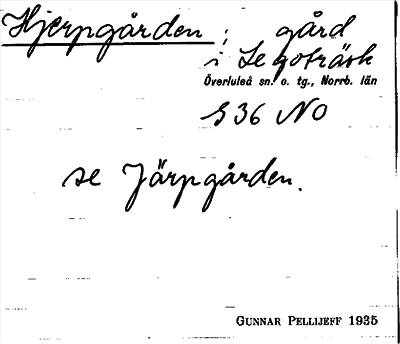 Hjerpgården; gård
i Legoträsk
Överluleå sn. o. tg., Norrb. län
S 36 NO
se Järpgården.
GUNNAR PELLIJEFF 1935